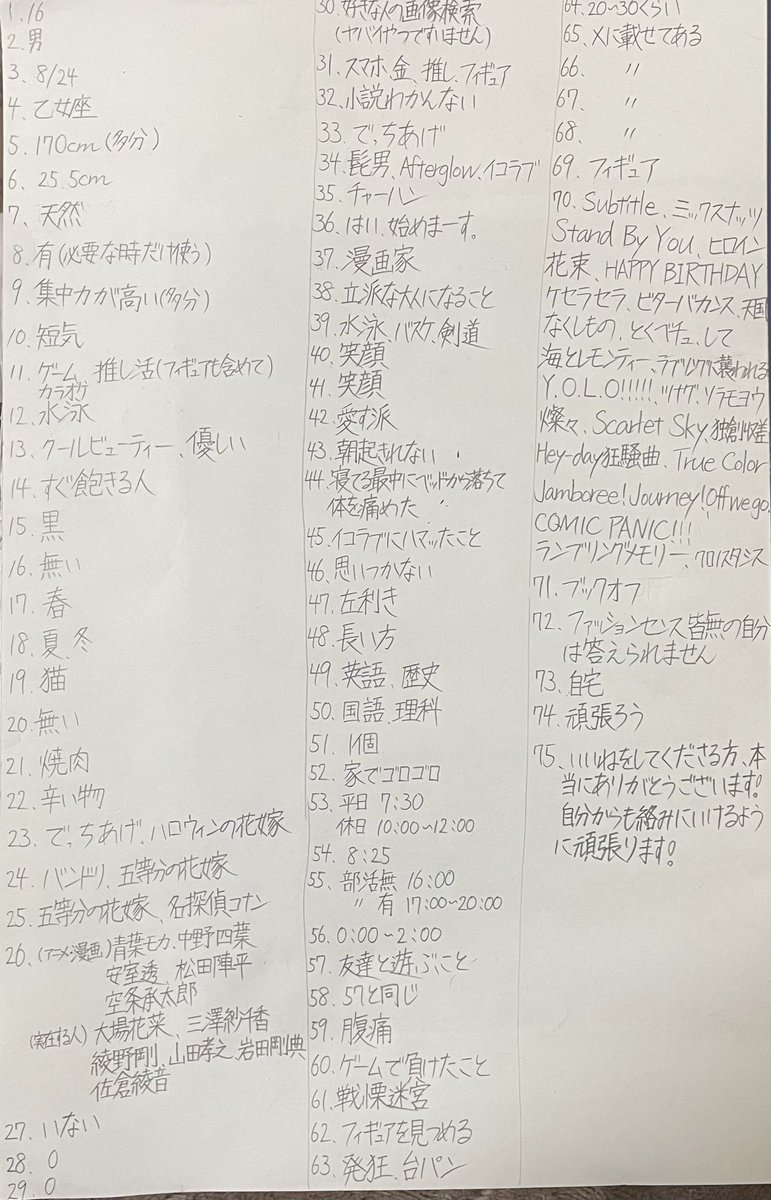 1. 16
2. 男
3. 8/24
4. 乙女座
5. 170cm (多分)
6. 25.5cm
7. 天然
8. 有(必要な時だけ使う)
9. 集中力が高い(多分)
10. 短気
11. ゲーム、推し活(フィギュアも含めて)
カラオケ
12. 水泳
13. クールビューティー、優しい
14. すぐ飽きる人
15. 黒
16. 無い
17. 春
18. 夏、冬
19. 猫
20. 無い
21. 焼肉
22. 辛い物
23. でっちあげ、ハロウィンの花嫁
24. バンドリ、五等分の花嫁
25. 五等分の花嫁、名探偵コナン
26. (アニメ・漫画)青葉モカ、中野四葉
安室透、松田陣平
空条承太郎
(実在する人)大場花菜、三澤紗千香
綾野剛、山田孝之、岩田剛典
佐倉綾音
27. いない
28. 0
29. 0
30. 好きな人の画像検索
(ヤバイやつですいません)
31. スマホ、金、推し、フィギュア
32. 小説わかんない
33. でっちあげ
34. 髭男、Afterglow、イコラブ
35. チャーハン
36. はい、始めまーす。
37. 漫画家
38. 立派な大人になること
39. 水泳、バスケ、剣道
40. 笑顔
41. 笑顔
42. 愛す派
43. 朝起きれない
44. 寝てる最中にベッドから落ちて
体を痛めた
45. イコラブにハマッたこと
46. 思いつかない
47. 左利き
48. 長い方
49. 英語、歴史
50. 国語、理科
51. 1個
52. 家でゴロゴロ
53. 平日 7:30
休日 10:00〜12:00
54. 8:25
55. 部活無 16:00
〃 有 17:00〜20:00
56. 0:00〜2:00
57. 友達と遊ぶこと
58. 57と同じ
59. 腹痛
60. ゲームで負けたこと
61. 戦慄迷宮
62. フィギュアを見つめる
63. 発狂、台パン
64. 20〜30くらい
65. Xに載せてある
66. 〃
67. 〃
68. 〃
69. フィギュア
70. Subtitle、ミックスナッツ
Stand By You、ヒロイン
花束、HAPPY BIRTHDAY
ケセラセラ、ビターバカンス、天国
なくしもの、とくべチュ、して
海とレモンティー、ラブソングに襲われる
Y.O.L.O!!!!!、ツナグ、ソラモヨウ
燦々、Scarlet Sky、独創収差
Hey-day狂騒曲、True Color
Jamboree!Journey!、Off we go!
COMIC PANIC!!!
ランブリングメモリー、クロノスタシス
71. ブックオフ
72. ファッションセンス皆無の自分
は答えられません
73. 自宅
74. 頑張ろう
75. いいねをしてくださる方、本
当にありがとうございます!
自分からも絡みにいけるよう
に頑張ります!